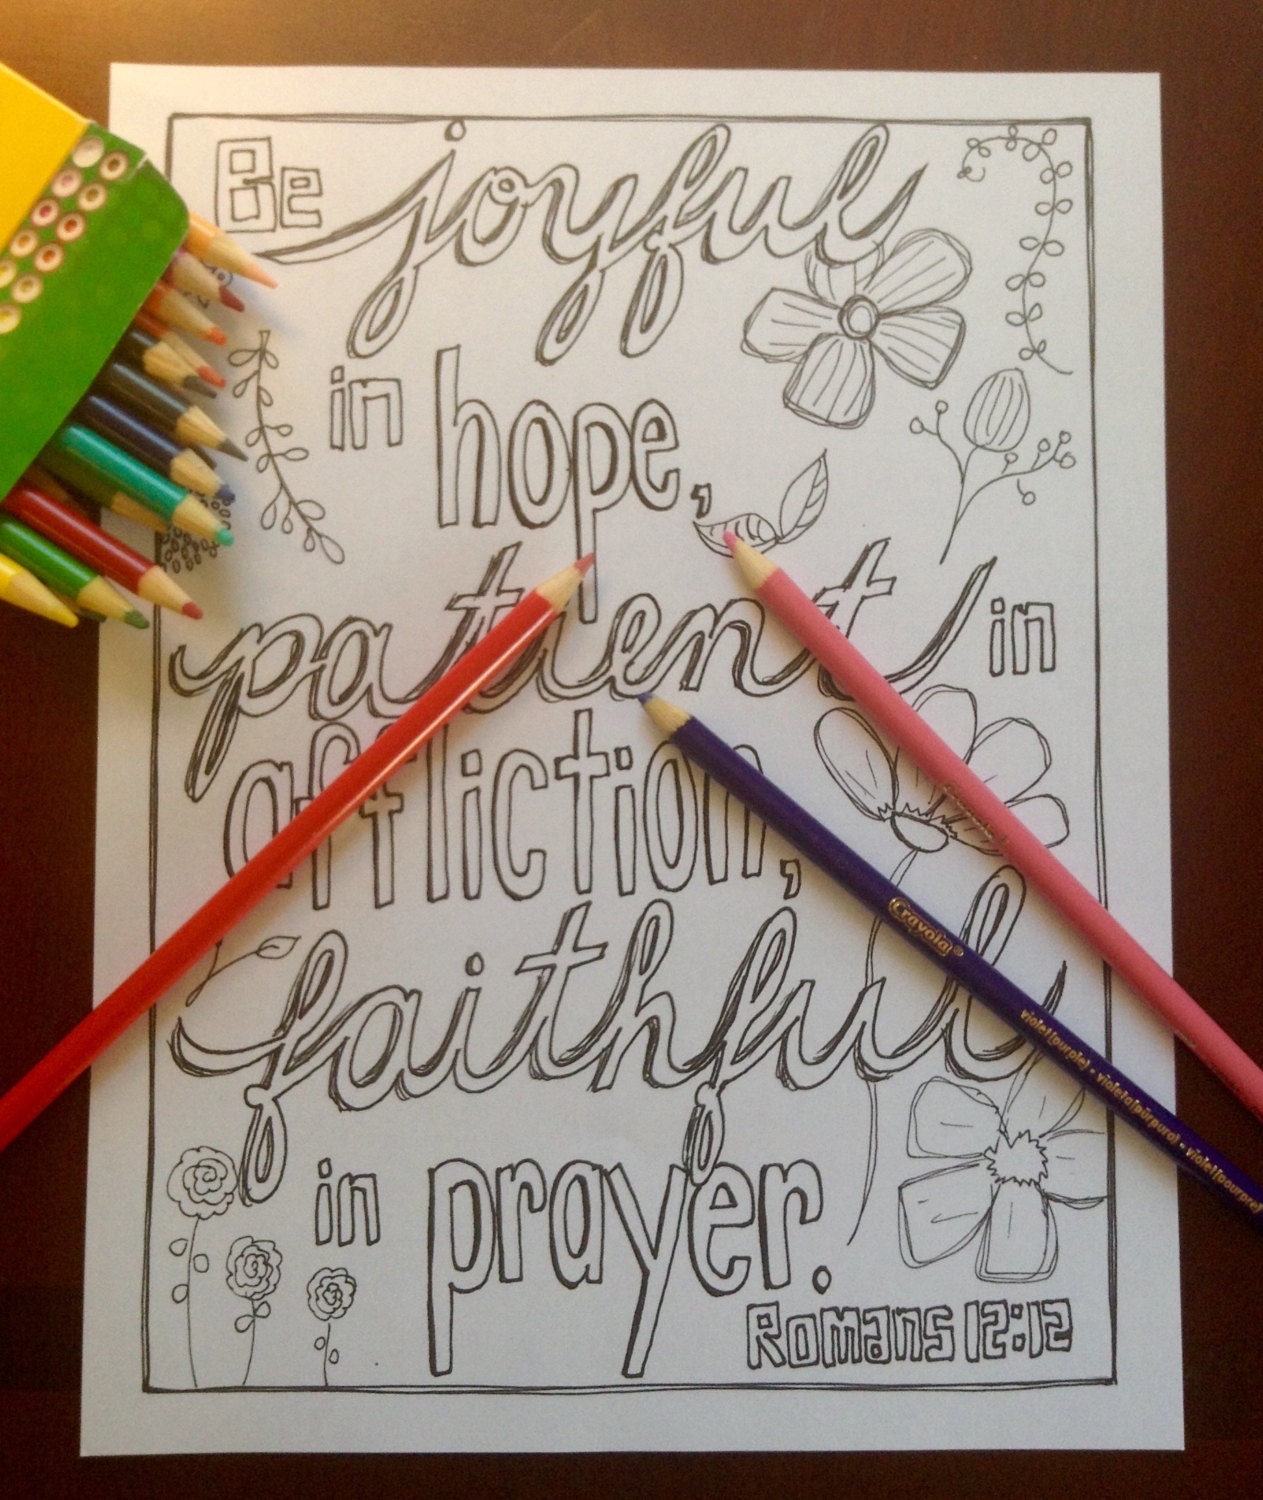 Be joyful
in hope,
patient in
affliction,
faithful
in prayer.
Romans 12:12
Crayola®
violet (purple) • violeta (púrpura) • violet (pourpre)